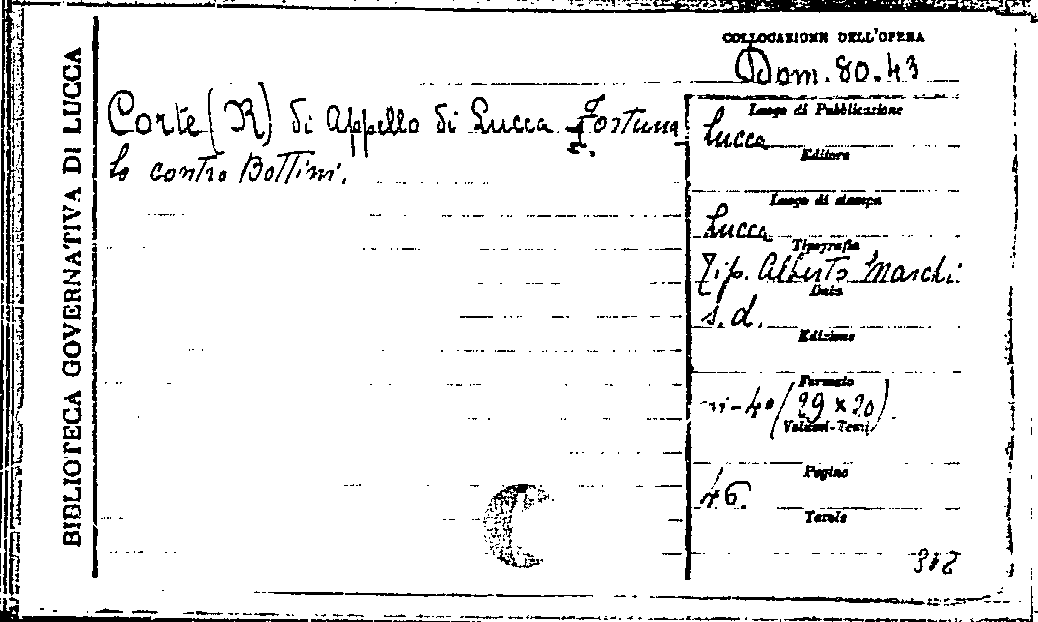 BIBLIOTECA GOVERNATIVA DI LUCCA
COLLOCAZIONE DELL'OPERA
Dom. 80.43
Corte (R) di Appello di Lucca Fortuna
to contro Bottini.
Luogo di Pubblicazione
Lucca
Editore
Luogo di stampa
Lucca
Tipografia
Tip. Alberto Marchi
Data
s.d.
Edizione
Formato
in-4º (29 x 20)
Volumi-Tomi
Pagine
46.
Tavole